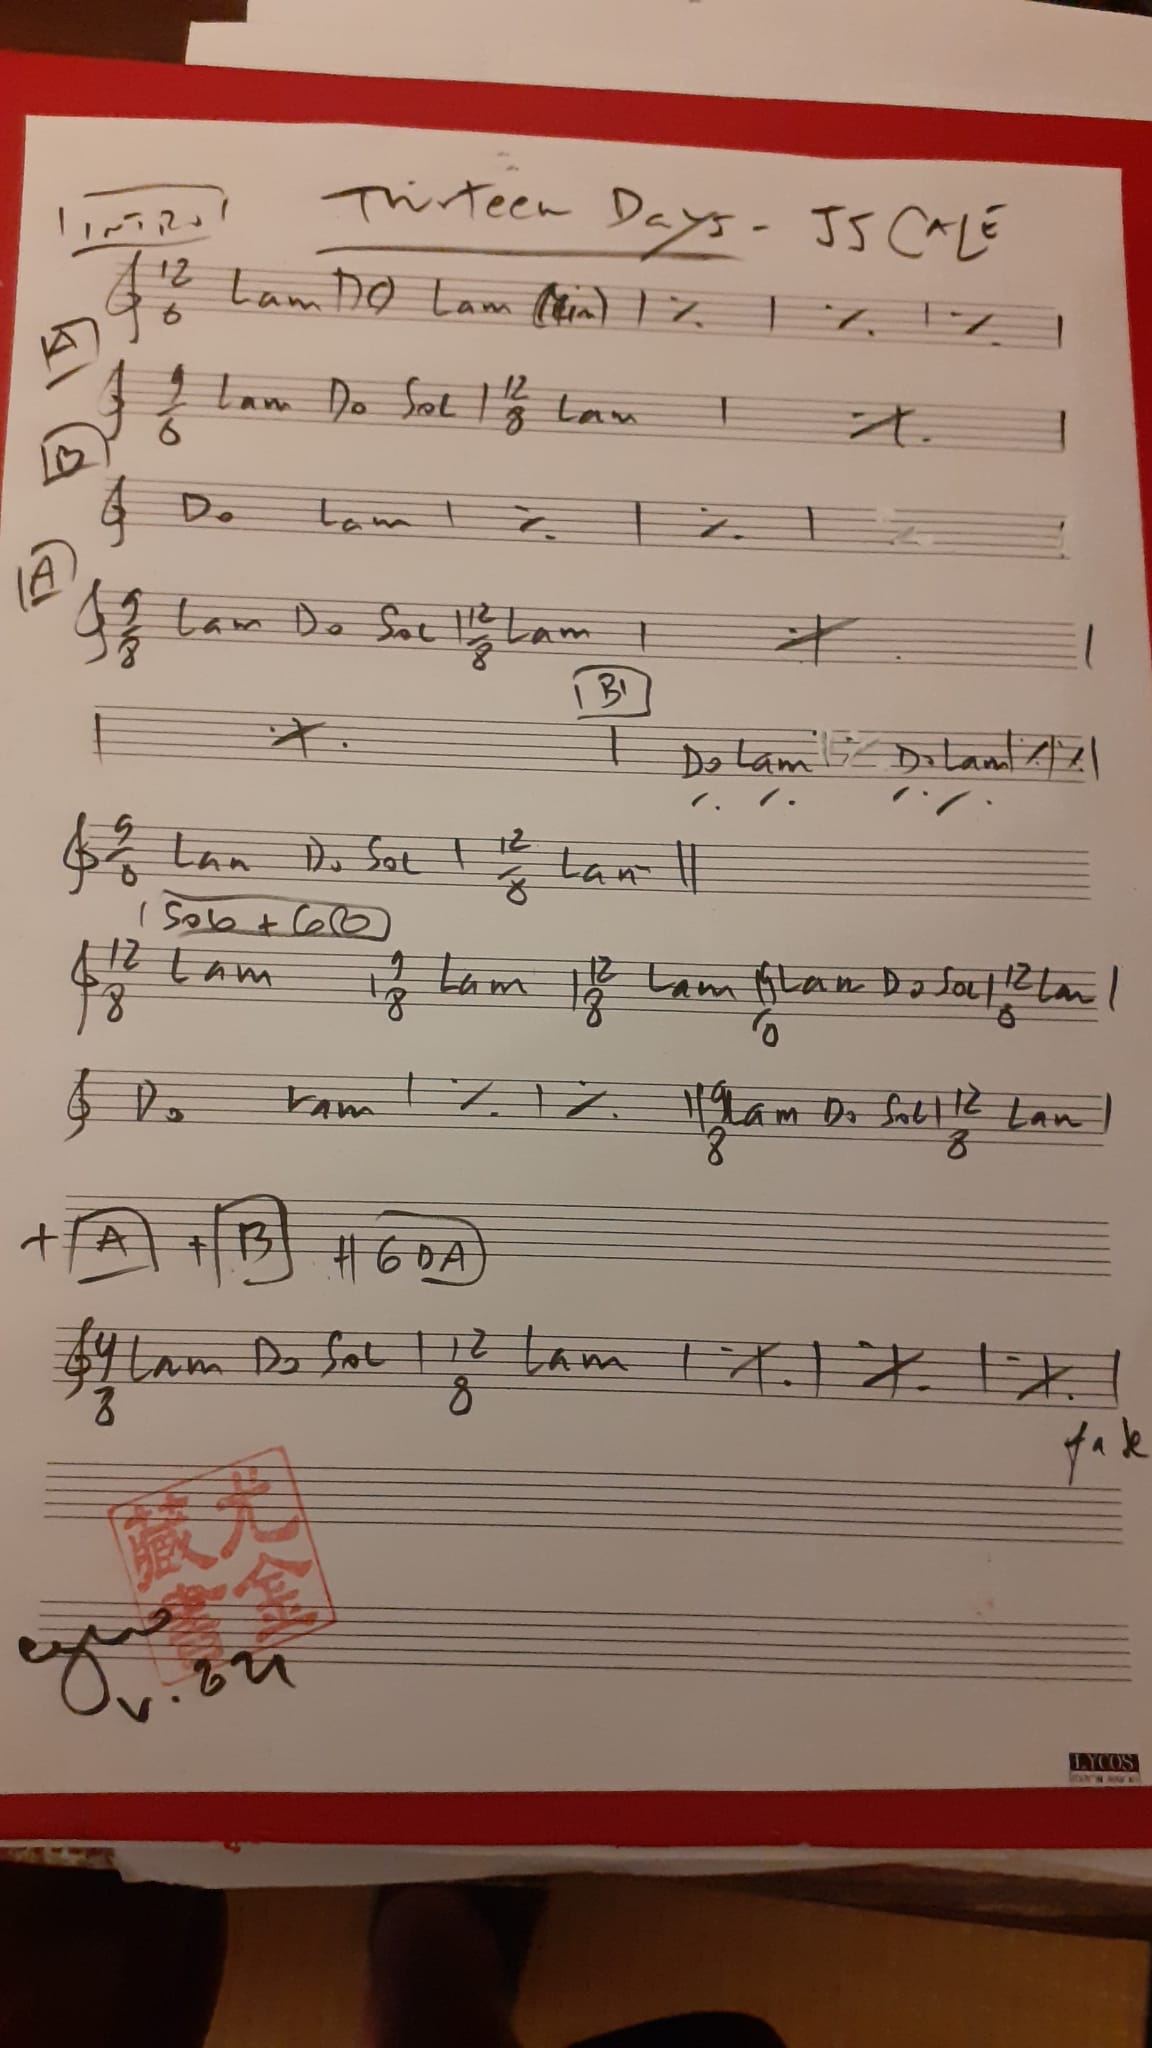 INTRO Thirteen Days - JJ CALE
12/8 Lam DO Lam | ٪ | ٪ | ٪ |
A
9/8 Lam Do Sol | 12/8 Lam | ٪ |
B
Do Lam | ٪ | ٪ |
A
9/8 Lam Do Sol | 12/8 Lam | ٪ |
B
| ٪ | Do Lam Do Lam | ٪ | ٪ |
9/8 Lam Do Sol | 12/8 Lam ||
12/8 Lam | 9/8 Lam | 12/8 Lam | 9/8 Lam Do Sol | 12/8 Lam |
Do Lam | ٪ | ٪ || 9/8 Lam Do Sol | 12/8 Lam |
+ A + B + CODA
9/8 Lam Do Sol | 12/8 Lam | ٪ | ٪ | ٪ |
fade
藏 尤
書 金
LYCOS